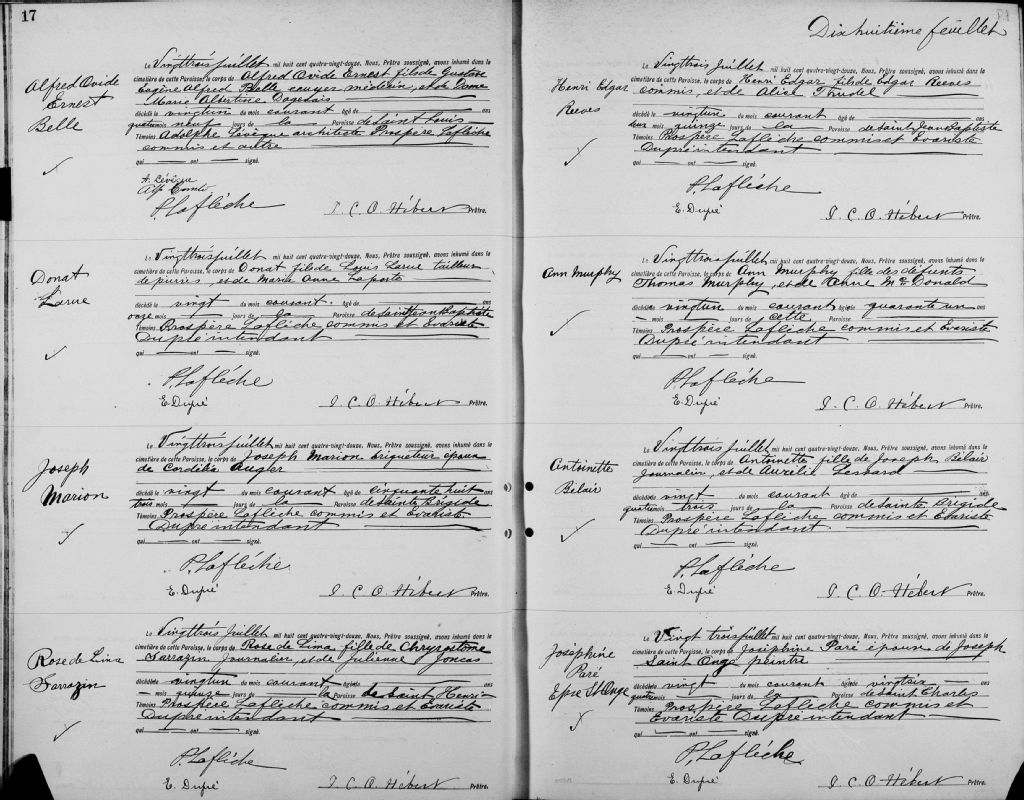 17
Alfred Ovide
Ernest
Belle
Le Vingttrois juillet mil huit cent quatre-vingt-douze. Nous, Prêtre soussigné, avons inhumé dans le
cimetière de cette Paroisse, le corps de Alfred Ovide Ernest fils de Gustave
Eugène Alfred Belle ecuyer médecin, et de Dame
Marie Albertine Dagenais
décédé le vingtun du mois courant âgé de ans
quatre mois neuf jours de la Paroisse de Saint Louis
Témoins Adolphe Lévêque architecte Prospère Laflèche
commis et autre
qui — ont — signé.
A. Lévêque
Alp Comte
P. Laflèche J. C. O. Hébert Prêtre.
Donat
Larue
Le Vingttrois juillet mil huit cent quatre-vingt-douze. Nous, Prêtre soussigné, avons inhumé dans le
cimetière de cette Paroisse, le corps de Donat fils de Louis Larue tailleur
de pierres, et de Marie Anne Laporte
décédé le vingt du mois courant âgé de ans
onze mois — jours de la Paroisse de Saint Jean Baptiste
Témoins Prospère Laflèche commis et Evariste
Dupré intendant
qui — ont — signé.
P. Laflèche
E. Dupré J. C. O. Hébert Prêtre.
Joseph
Marion
Le Vingttrois juillet mil huit cent quatre-vingt-douze. Nous, Prêtre soussigné, avons inhumé dans le
cimetière de cette Paroisse, le corps de Joseph Marion briqueteur époux
de Cordélie Auger
décédé le vingt du mois courant âgé de cinquante huit ans
trois mois — jours de la Paroisse de Sainte Brigide
Témoins Prospère Laflèche commis et Evariste
Dupré intendant
qui — ont — signé.
P. Laflèche
E. Dupré J. C. O. Hébert Prêtre.
Rose de Lima
Sarrazin
Le Vingttrois juillet mil huit cent quatre-vingt-douze. Nous, Prêtre soussigné, avons inhumé dans le
cimetière de cette Paroisse, le corps de Rose de Lima fille de Chrysostome
Sarrazin Journalier, et de Julienne Joncas
décédée le vingtun du mois courant âgé de ans
— mois quinze jours de la Paroisse de Saint Henri
Témoins Prospère Laflèche commis et Evariste
Dupré intendant
qui — ont — signé.
P. Laflèche
E. Dupré J. C. O. Hébert Prêtre.
Dixhuitième feuillet
Henri Edgar
Reeves
Le Vingttrois juillet mil huit cent quatre-vingt-douze. Nous, Prêtre soussigné, avons inhumé dans le
cimetière de cette Paroisse, le corps de Henri Edgar fils de Edgar Reeves
commis, et de Alice Trudel
décédé le vingtun du mois courant âgé de ans
deux mois quinze jours de la Paroisse de Saint Jean Baptiste
Témoins Prospère Laflèche commis et Evariste
Dupré intendant
qui — ont — signé.
P. Laflèche
E. Dupré J. C. O. Hébert Prêtre.
Ann Murphy
Le Vingttrois juillet mil huit cent quatre-vingt-douze. Nous, Prêtre soussigné, avons inhumé dans le
cimetière de cette Paroisse, le corps de Ann Murphy fille des défunts
Thomas Murphy, et de McDonald
décédée le vingtun du mois courant âgée de quarante un ans
— mois — jours de cette Paroisse
Témoins Prospère Laflèche commis et Evariste
Dupré intendant
qui — ont — signé.
P. Laflèche
E. Dupré J. C. O. Hébert Prêtre.
Antoinette
Bélair
Le Vingttrois juillet mil huit cent quatre-vingt-douze. Nous, Prêtre soussigné, avons inhumé dans le
cimetière de cette Paroisse, le corps de Antoinette fille de Joseph Bélair
Journalier, et de Aurelie
décédé le vingt du mois courant âgé de ans
quatre mois trois jours de la Paroisse de Sainte Brigide
Témoins Prospère Laflèche commis et Evariste
Dupré intendant
qui — ont — signé.
P. Laflèche
E. Dupré J. C. O. Hébert Prêtre.
Joséphine
Paré
Epse St Onge
Le Vingt trois juillet mil huit cent quatre-vingt-douze. Nous, Prêtre soussigné, avons inhumé dans le
cimetière de cette Paroisse, le corps de Joséphine Paré épouse de Joseph
Saint Onge peintre
décédée le vingt du mois courant âgée de vingtsix ans
quatre mois — jours de la Paroisse de Saint Charles
Témoins Prospère Laflèche commis et
Evariste Dupré intendant
qui — ont — signé.
P. Laflèche
E. Dupré J. C. O. Hébert Prêtre.